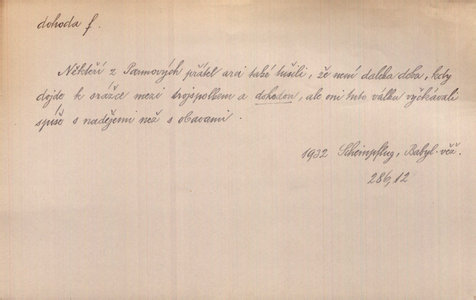 dohoda f.
Někteří z Parmových přátel asi také tušili, že není daleka doba, kdy
dojde k srážce mezi trojspolkem a dohodou, ale oni tuto válku vyčkávali
spíše s nadějemi než s obavami.
1932 Scheinpflug, Babyl. věž.
286,12